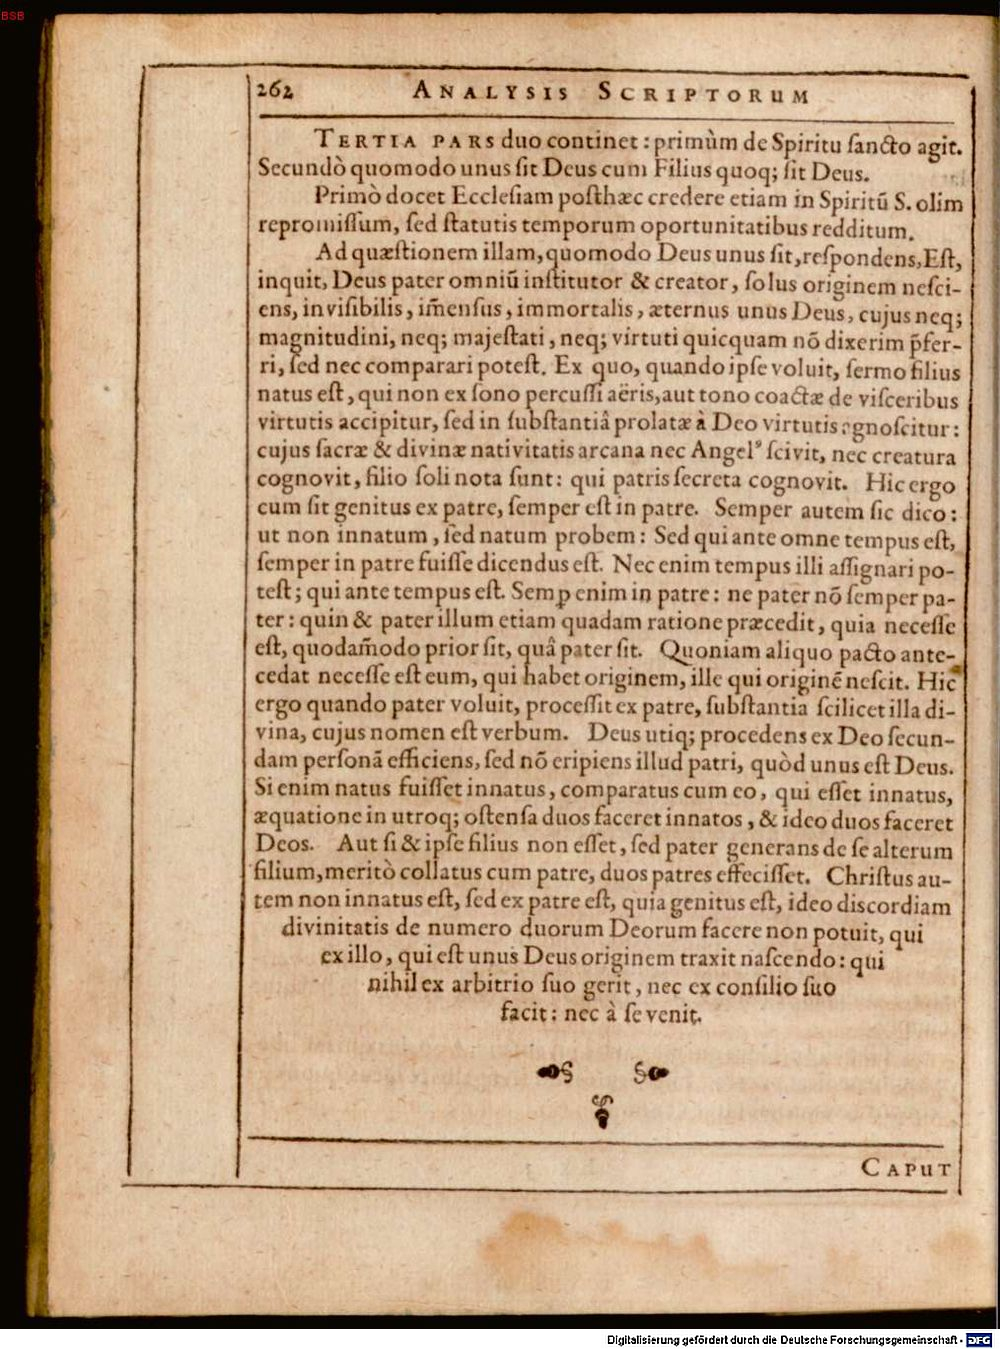 BSB
262 ANALYSIS SCRIPTORUM
TERTIA PARS duo continet: primùm de Spiritu ſancto agit.
Secundò quomodo unus ſit Deus cum Filius quoq; ſit Deus.
Primò docet Eccleſiam poſthæc credere etiam in Spiritū S. olim
repromiſſum, ſed ſtatutis temporum oportunitatibus redditum.
Ad quæſtionem illam, quomodo Deus unus ſit, reſpondens, Eſt,
inquit, Deus pater omniū inſtitutor & creator, ſolus originem neſci-
ens, inviſibilis, im̃enſus, immortalis, æternus unus Deus, cujus neq;
magnitudini, neq; majeſtati, neq; virtuti quicquam nō dixerim p̄fer-
ri, ſed nec comparari poteſt. Ex quo, quando ipſe voluit, ſermo filius
natus eſt, qui non ex ſono percuſſi aëris, aut tono coactæ de viſceribus
virtutis accipitur, ſed in ſubſtantiâ prolatæ à Deo virtutis agnoſcitur:
cujus ſacræ & divinæ nativitatis arcana nec Angelꝰ ſcivit, nec creatura
cognovit, filio ſoli nota ſunt: qui patris ſecreta cognovit. Hic ergo
cum ſit genitus ex patre, ſemper eſt in patre. Semper autem ſic dico:
ut non innatum, ſed natum probem: Sed qui ante omne tempus eſt,
ſemper in patre fuiſſe dicendus eſt. Nec enim tempus illi aſſignari po-
teſt; qui ante tempus eſt. Semꝑ enim in patre: ne pater nō ſemper pa-
ter: quin & pater illum etiam quadam ratione præcedit, quia neceſſe
eſt, quodam̃odo prior ſit, quâ pater ſit. Quoniam aliquo pacto ante-
cedat neceſſe eſt eum, qui habet originem, ille qui originē neſcit. Hic
ergo quando pater voluit, proceſſit ex patre, ſubſtantia ſcilicet illa di-
vina, cujus nomen eſt verbum. Deus utiq; procedens ex Deo ſecun-
dam perſonā efficiens, ſed nō eripiens illud patri, quòd unus eſt Deus.
Si enim natus fuiſſet innatus, comparatus cum eo, qui eſſet innatus,
æquatione in utroq; oſtenſa duos faceret innatos, & ideo duos faceret
Deos. Aut ſi & ipſe filius non eſſet, ſed pater generans de ſe alterum
filium, meritò collatus cum patre, duos patres effeciſſet. Chriſtus au-
tem non innatus eſt, ſed ex patre eſt, quia genitus eſt, ideo discordiam
divinitatis de numero duorum Deorum facere non potuit, qui
ex illo, qui eſt unus Deus originem traxit naſcendo: qui
nihil ex arbitrio ſuo gerit, nec ex conſilio ſuo
facit: nec à ſe venit.
CAPUT
Digitalisierung gefördert durch die Deutsche Forschungsgemeinschaft - DFG